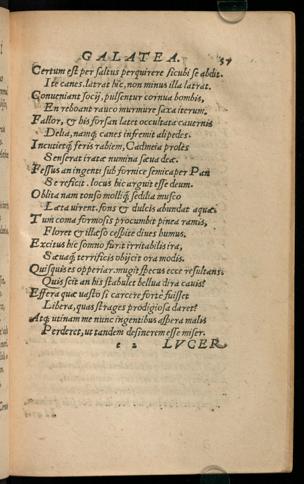 GALATEA. 37
Certum est per saltus perquirere sicubi se abdit.
Ite canes. latrat hic, non minus illa latrat.
Conueniant socij, pulsentur cornua bombis,
En reboant rauco murmure saxa iterum.
Fallor, & his forsan latet occultata cauernis
Delia, namq; canes infremit alipedes.
Incutietq; feris rabiem, Cadmeia proles
Senserat iratæ numina sæua deæ.
Fessus an ingenti sub fornice semicaper Pan
Se reficit. locus hic arguit esse deum.
Oblita nam tonso molliq; sedilia musco
Læta uirent. fons & dulcis abundat aquæ.
Tum coma formosis procumbit pinea ramis,
Floret & illæso cespite diues humus.
Excitus hic somno furit irritabilis ira,
Sæuaq; terrificis obijcit ora modis.
Quisquis es opperiar. mugit specus ecce resultans.
Quis scit an his stabulet bellua dira cauis?
Effera quæ uasto si carcere fortè fuisset
Libera, quas strages prodigiosa daret?
Atq; utinam me nunc ingentibus aspera malis
Perderet, ut tandem desinerem esse miser.
e 2 LVCER